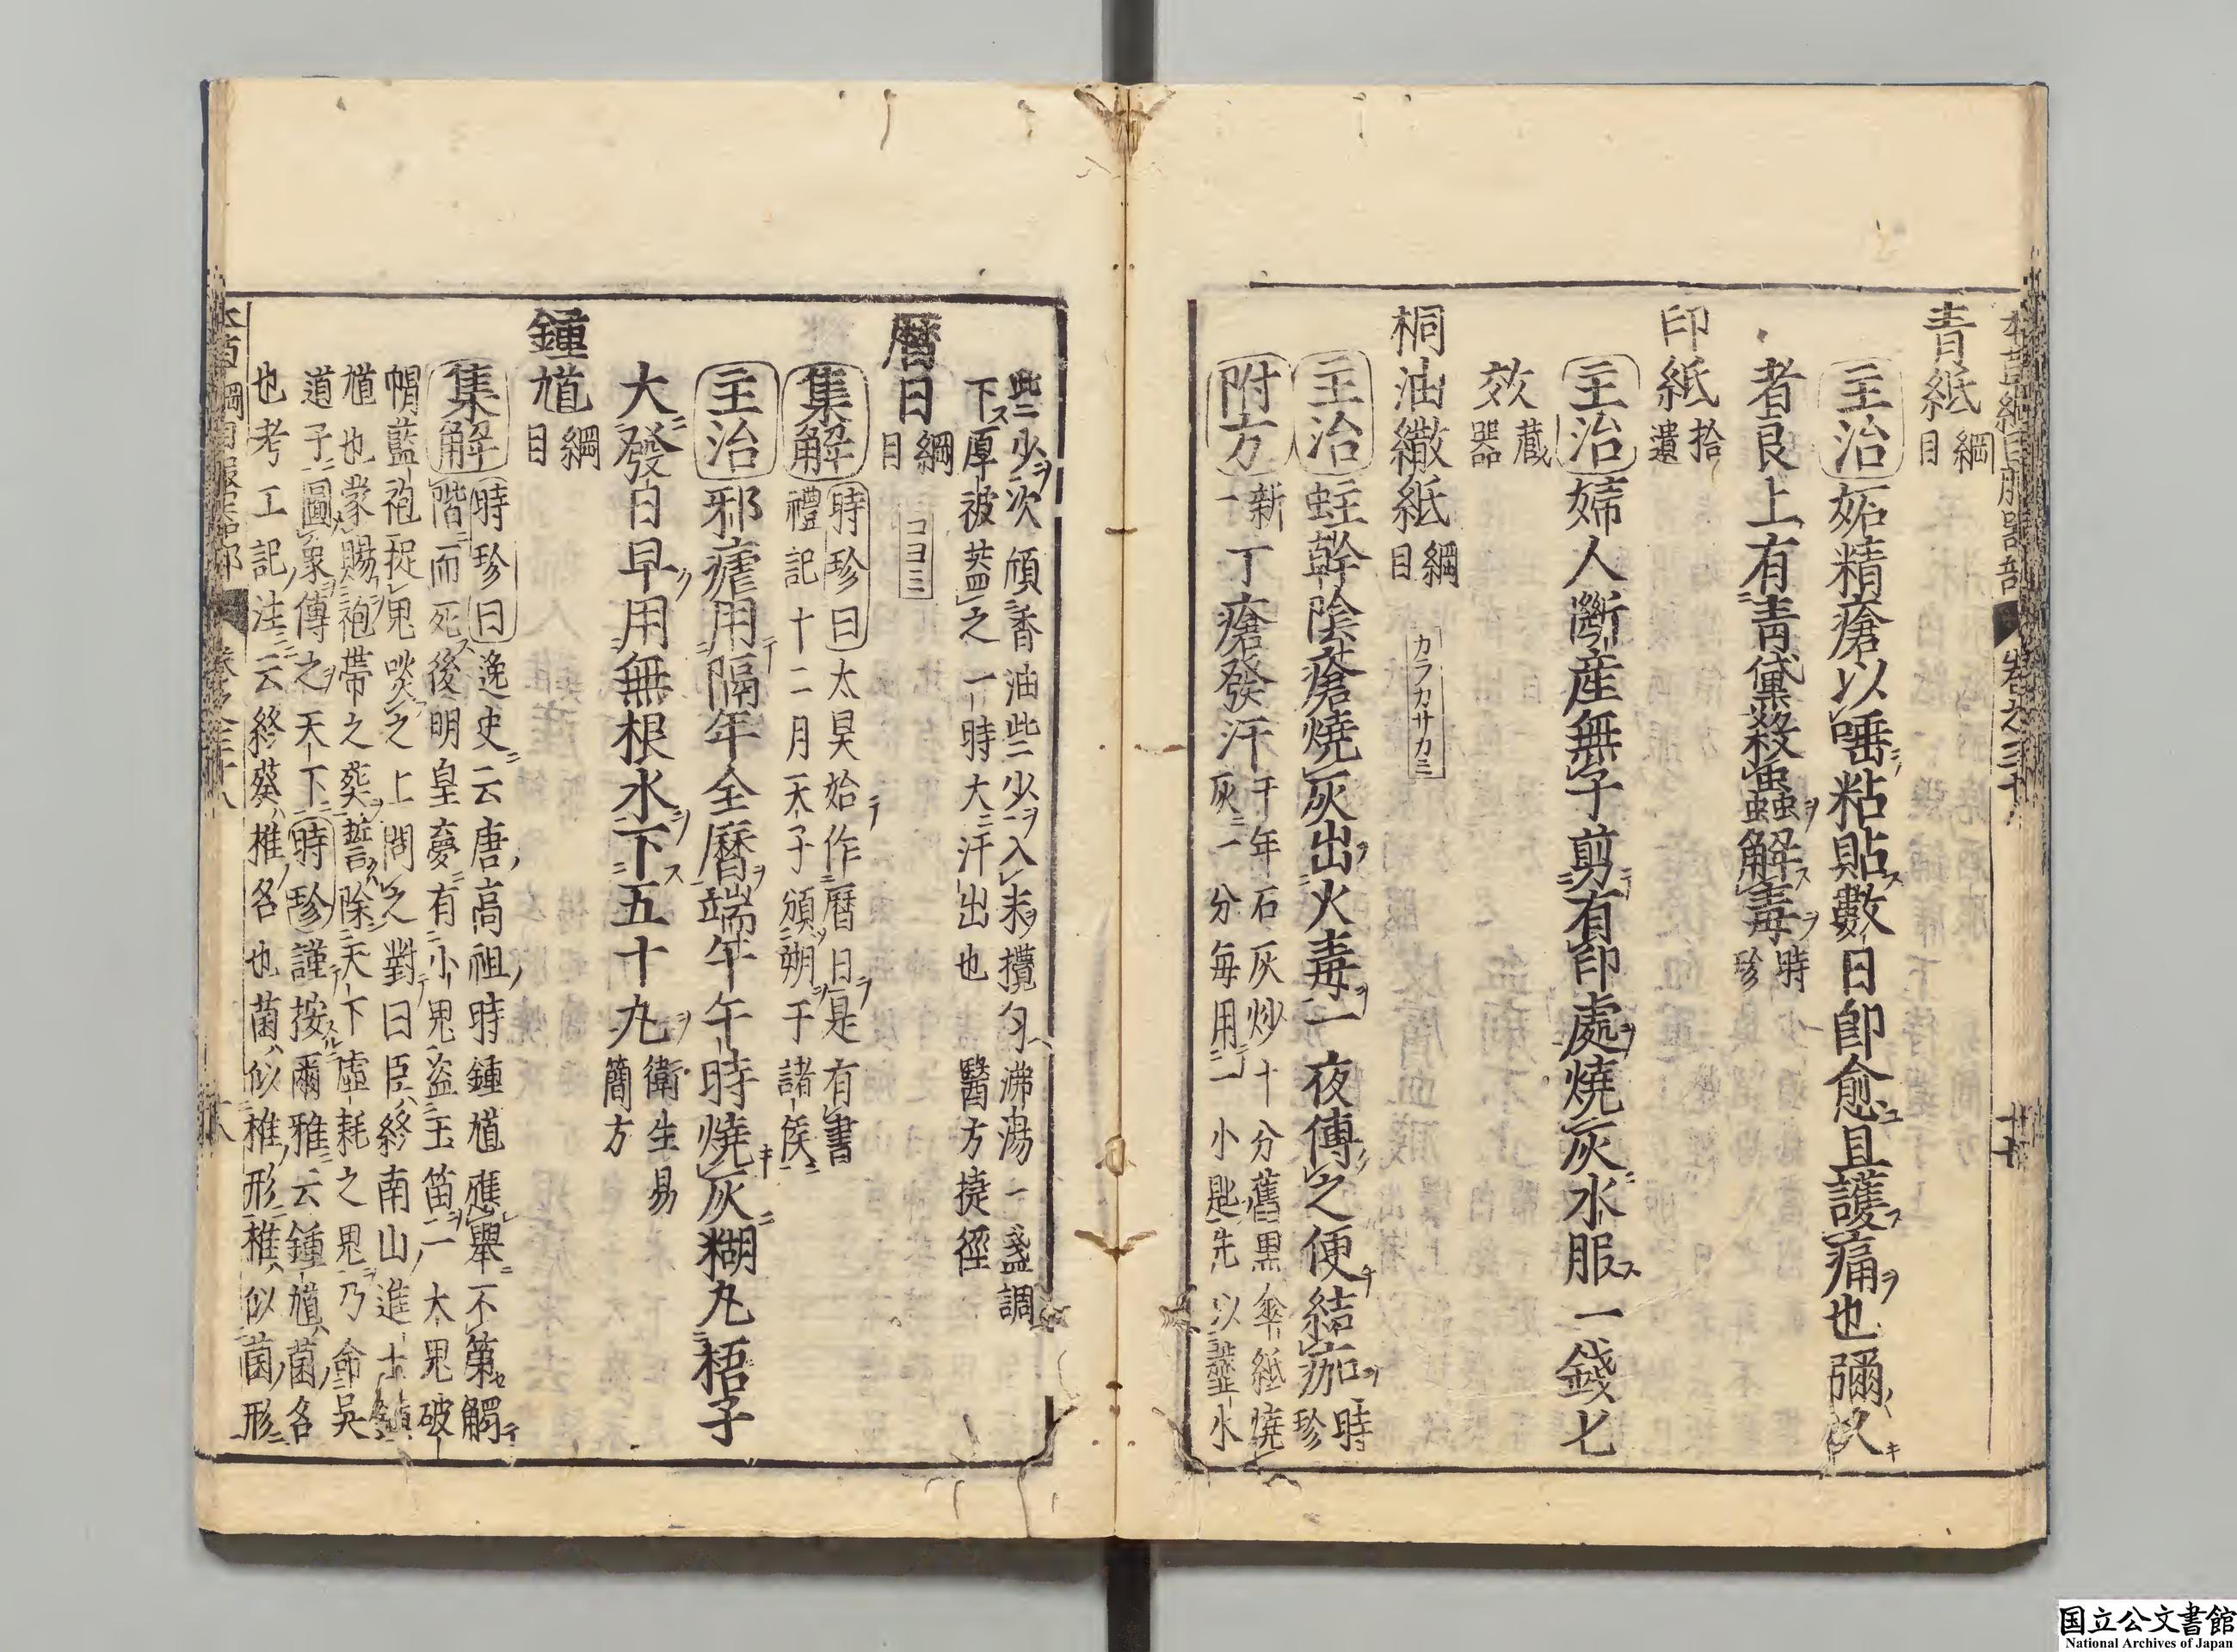 本草綱目服器部 卷之三十八 十七
青紙 綱目
主治 妬精瘡以唾粘貼數日即愈且護痛也彌久
者良上有青黛殺蟲解毒 時珍
印紙 拾遺
主治 婦人斷産無子剪有印處燒灰水服一錢匕
效 藏器
桐油繖紙 綱目 カラカサカミ
主治 蛀幹陰瘡燒灰出火毒一夜傅之便結痂 時珍
附方 新一 丁瘡發汗 千年石灰炒十分舊黒傘紙燒
灰一分毎用一小匙先以虀水
些少次傾香油些少入末攪匀沸湯一盞調
下厚被葢之一時大汗出也 醫方捷徑
曆日 綱目 コヨミ
集解 時珍曰太昊始作曆日是有書
禮記十二月天子頒朔于諸侯
主治 邪瘧用隔年全曆端午午時燒灰糊丸梧子
大發日早用無根水下五十丸 衛生易簡方
鍾馗 綱目
集解 時珍曰逸史云唐高祖時鍾馗應舉不第觸
階而死後明皇夢有小鬼盗玉笛一大鬼破
帽藍袍捉鬼啖之上問之對曰臣終南山進士鍾
馗也蒙賜袍帶之葬誓除天下虚耗之鬼乃命吳
道子圖象傳之天下時珍謹按爾雅云鍾馗菌名
也考工記注云終葵椎名也菌似椎形椎似菌形
本草綱目服器部 卷之三十八 十八
国立公文書館
National Archives of Japan